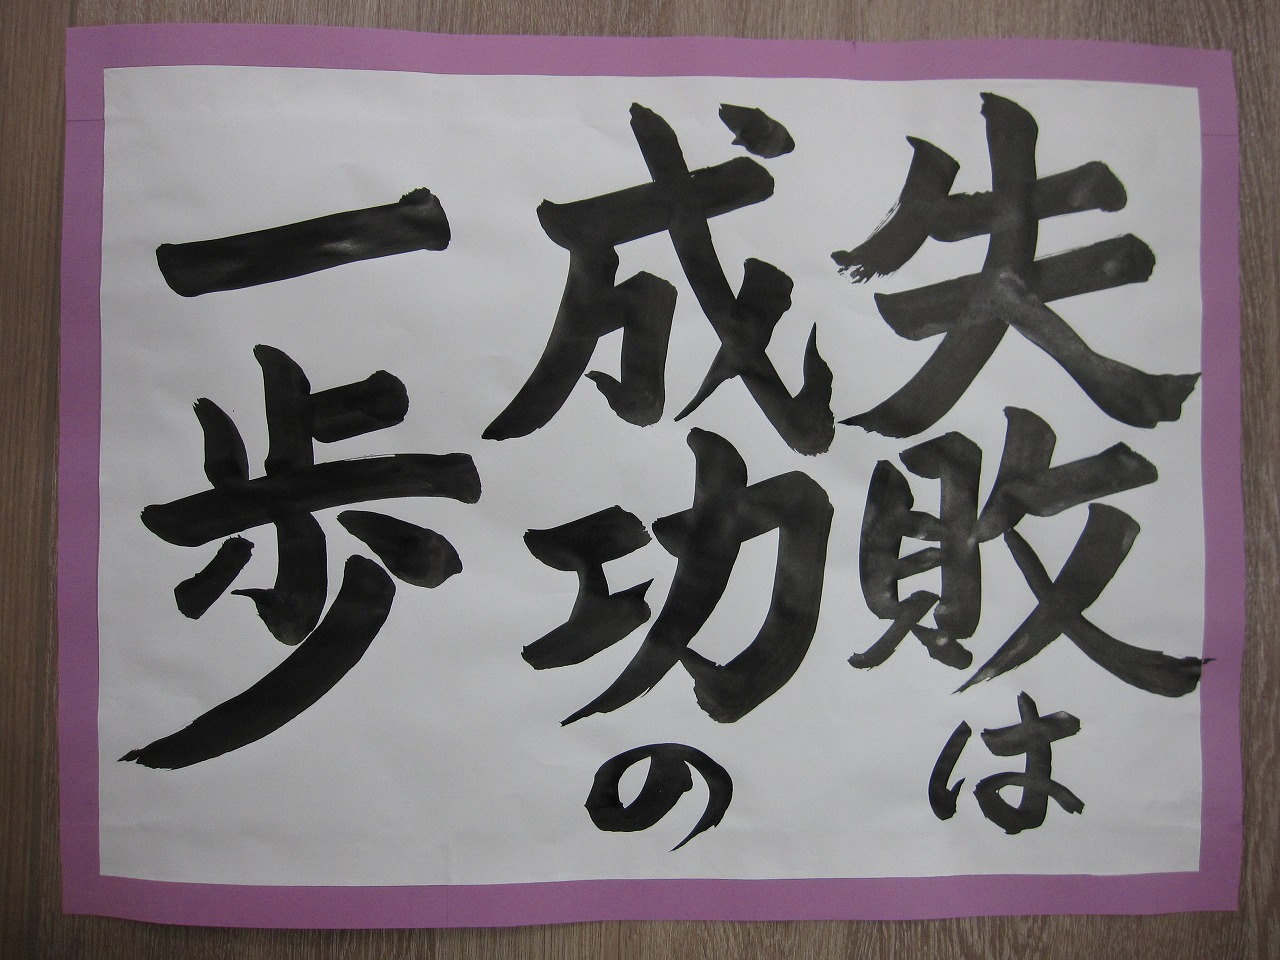 失敗は
成功の
一歩